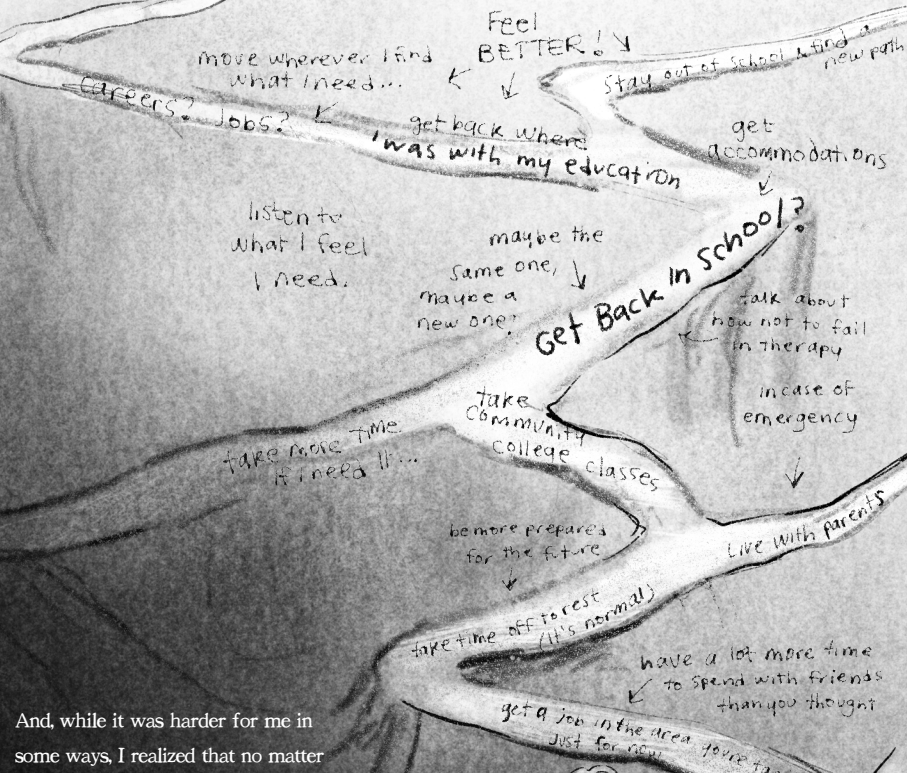 Feel
BETTER!
move wherever I find
what I need...
Stay out of school & find a
new path
careers? Jobs?
get back where
I was with my education
get
accommodations
listen to
what I feel
I need.
maybe the
same one,
maybe a
new one?
Get Back in School?
talk about
how not to fail
in therapy
in case of
emergency
take
community
college classes
take more time
if i need it...
be more prepared
for the future
Live with parents
take time off to rest
(it's normal)
have a lot more time
to spend with friends
than you thought
get a job in the area you're
just for now
And, while it was harder for me in
some ways, I realized that no matter